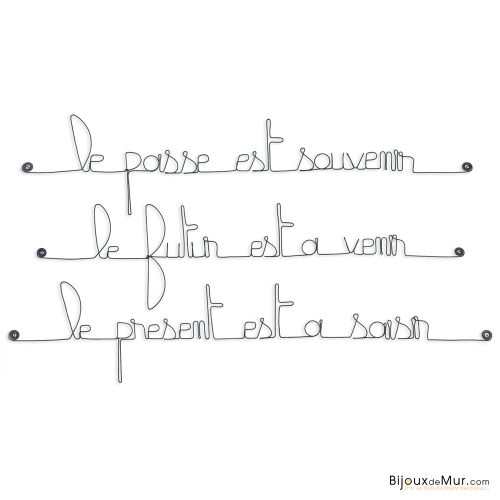 le passe est souvenir
le futur est a venir
le present est a saisir
BijouxdeMur.com